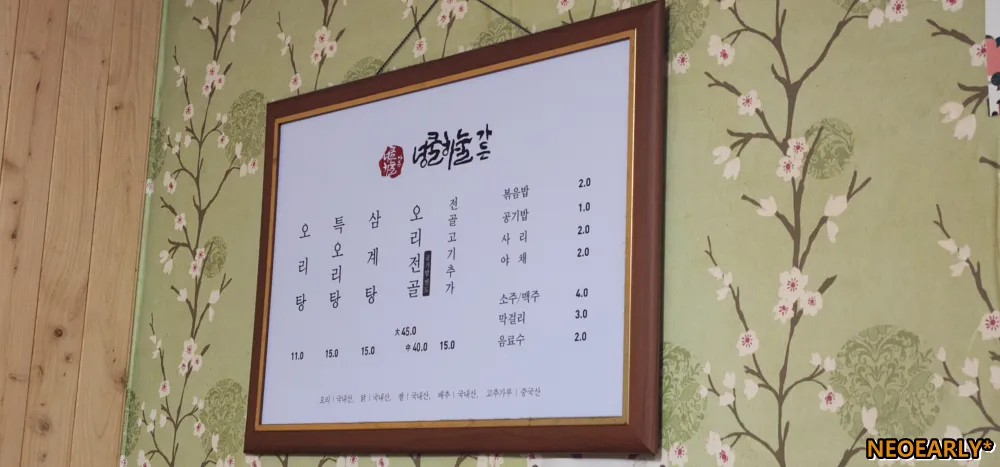 넝쿨하늘 가든
오리탕 11.0
특오리탕 15.0
삼계탕 15.0
오리전골 大 45.0
中 40.0
전골고기추가 15.0
볶음밥 2.0
공기밥 1.0
사리 2.0
야채 2.0
소주/맥주 4.0
막걸리 3.0
음료수 2.0
오리 | 국내산, 닭 | 국내산, 쌀 | 국내산, 배추 | 국내산, 고추가루 | 중국산
NEOEARLY*